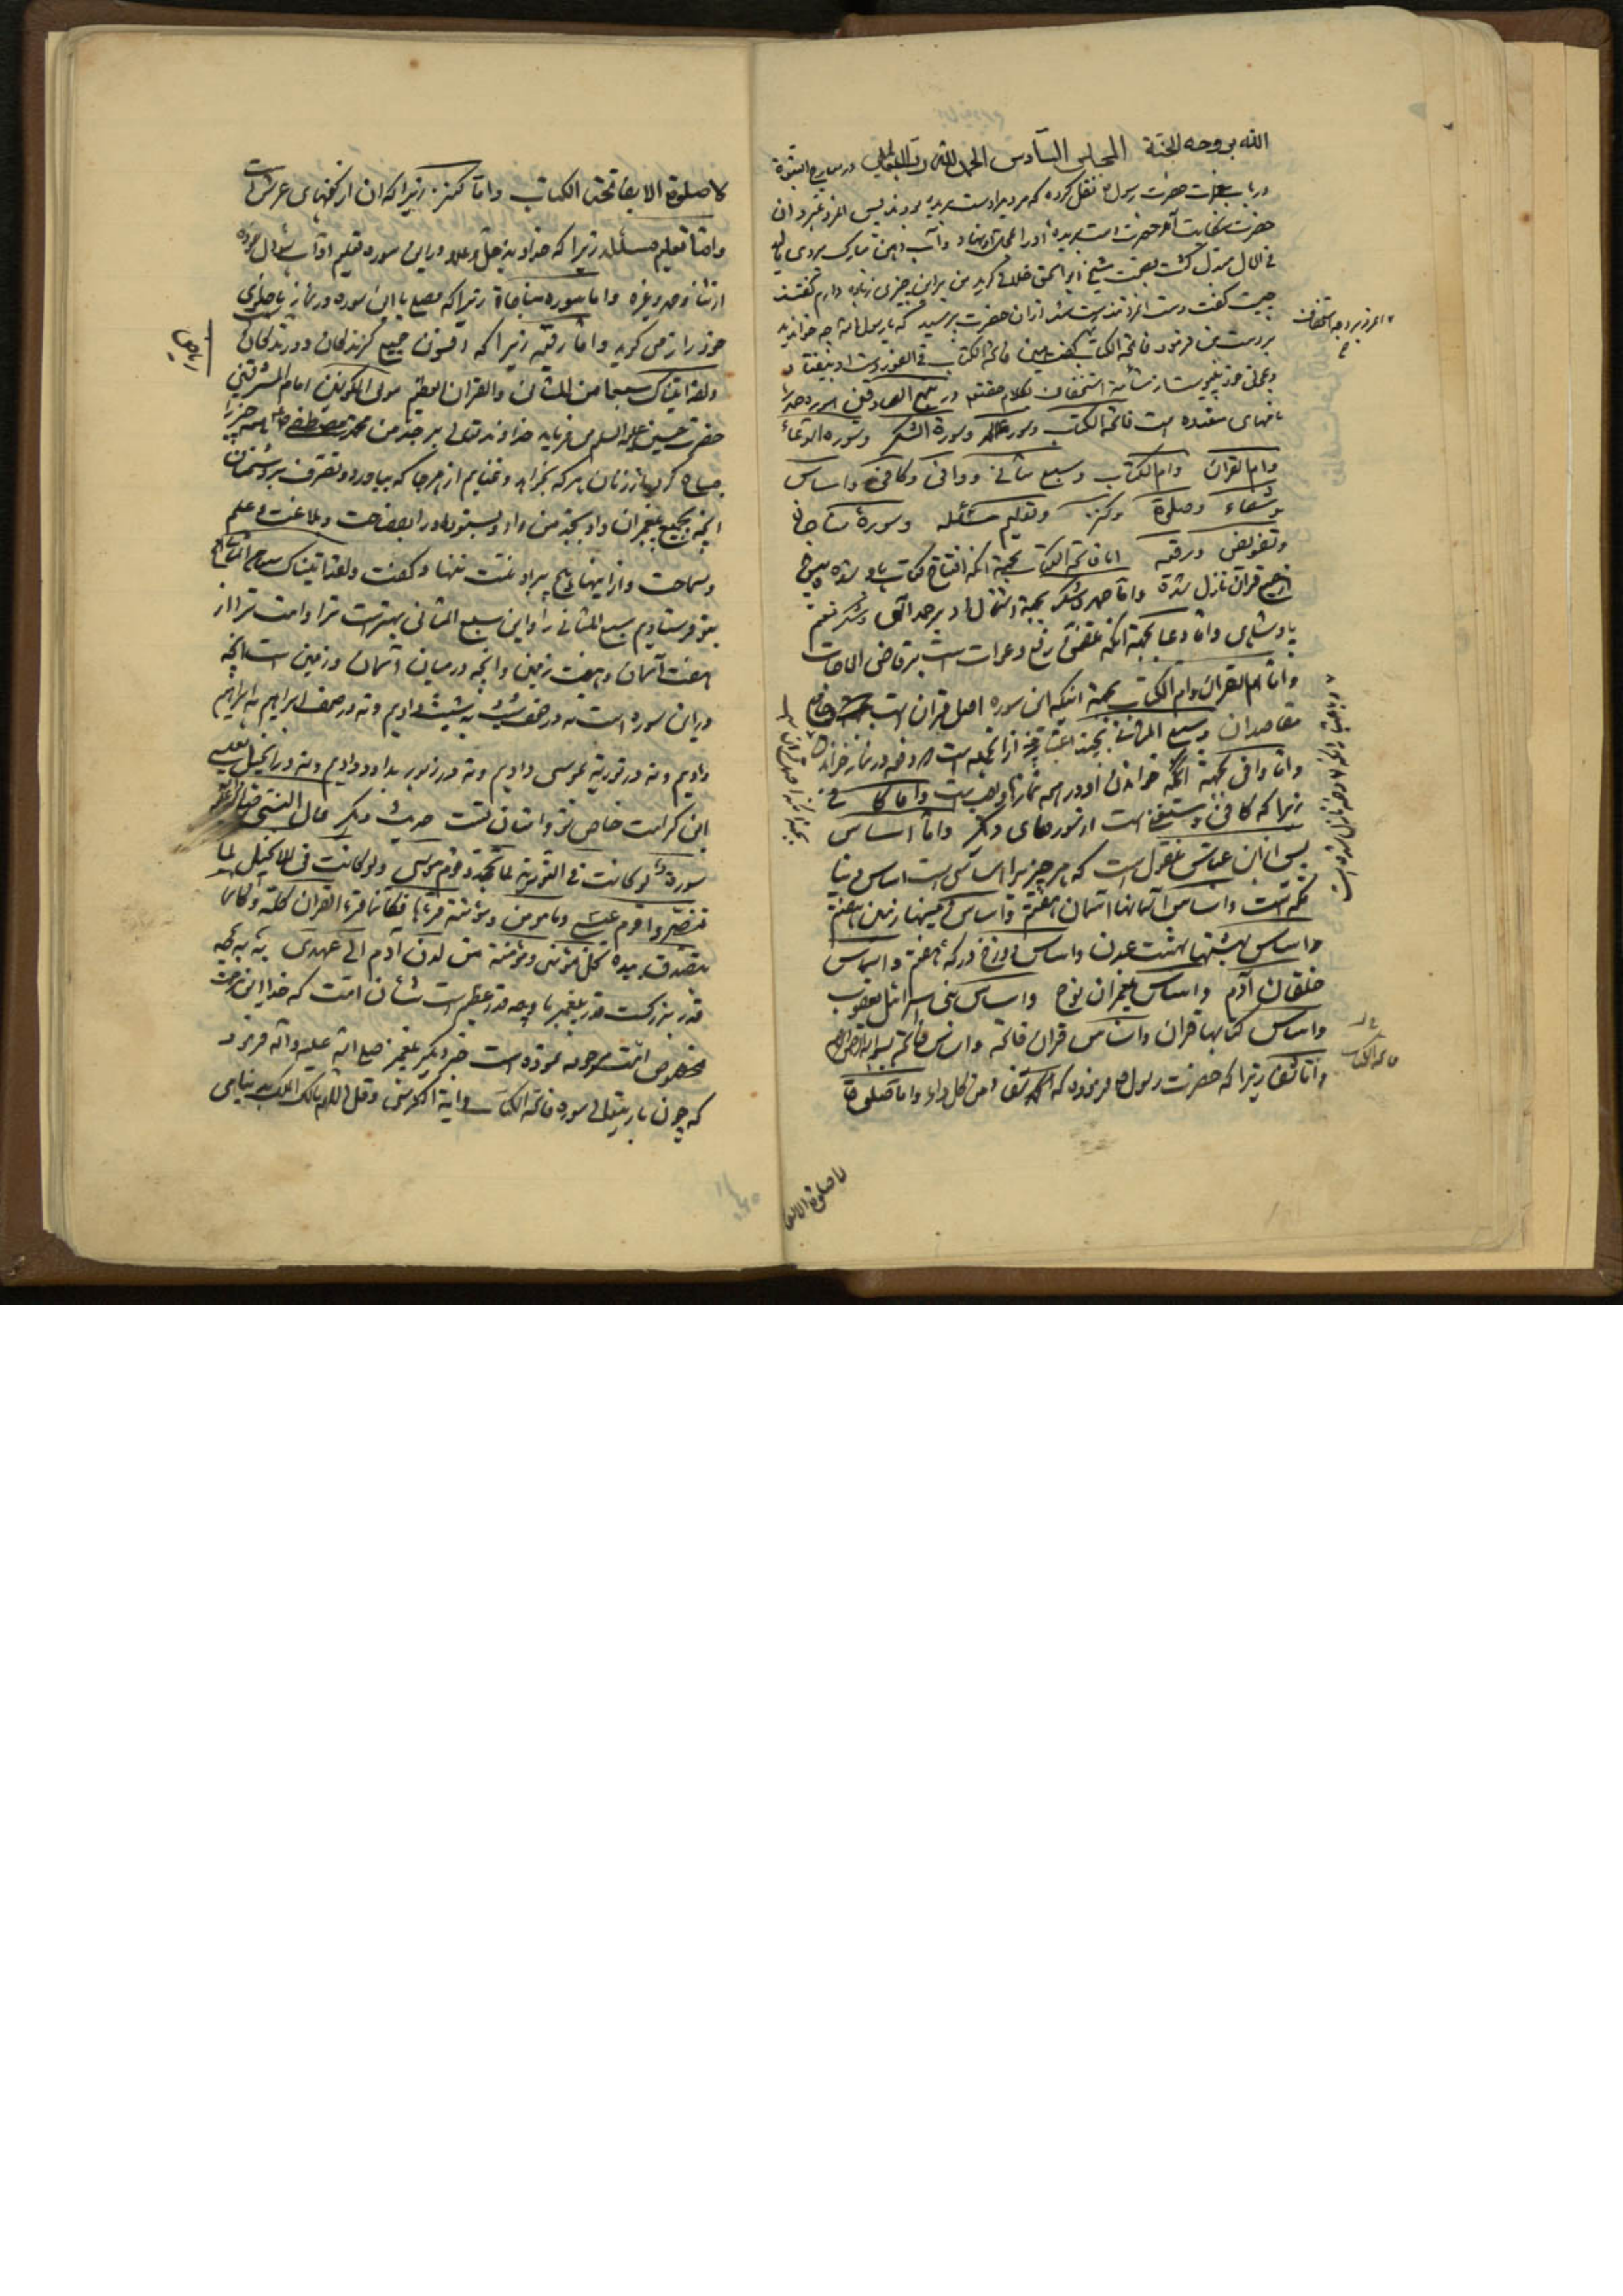 الله بروحه الجنة المجلس السادس الحمد لله رب العالمین در معارج النبوة
در باب معجزات حضرت رسول نقل کرده که مردیرا دست بریده بودند پس امد و نزد ان
حضرت شکایت آن حضرت دست بریده او را بمحل او نهاد و آب دهن مبارک بروی مالید
فی الحال متصل گشت بصحت شیخ ابو الحق خلافی گوید من براین چیزی زیاده دارم گفتند
چیست گفت دست انمرد درست شد از ان حضرت پرسید که یا رسول الله چه خواندید
بر دست من فرمود فاتحة الکتاب گفت همین فاتحة الکتاب فی الفور دست او بیفتاد
و بمحل خود پیوست از شأمة استخفاف بکلام حق در منهج الصادقین سوره حمد را
نامهای متعدده است فاتحة الکتاب و سوره الحمد و سورة الشکر و سورة الدعاء
و ام القران و ام الکتاب و سبع مثانی و وافی و کافی و اساس
و شفاء و صلوة و کنز و تعلیم مسئله و سورة مناجات
و تفویض و رقیه اما فاتحة الکتاب بجهة انکه افتتاح کتاب باو شده و پیش
از جمیع قران نازل شده و اما حمد و شکر بجهة اشتمال او بر حمد الهی و شکر نعم
پادشاهی و اما دعا بجهة انکه متضمن رفع دعوات است بر قاضی الحاجات
و اما ام القران و ام الکتاب بجهة اینکه این سوره اصل قران است
مقاصد ان و سبع المثانی بچند اعتبار از انجمله است دو دفعه در نماز خوانند
و اما وافی بجهة انکه خواندن او در همه نمازها واجب است و اما کافی
زیرا که کافی و مستغنی است از سورهای دیگر و اما اساس
پس از ابن عباس منقول است که هر چیز را اساسی است اساس دنیا
مکه است و اساس آسمانها اسمان هفتم و اساس زمینها زمین هفتم
و اساس بهشتها بهشت عدن و اساس دوزخ درکه هفتم و اساس
خلقان آدم و اساس پیغمبران نوح و اساس بنی اسرائیل یعقوب
و اساس کتابها قران و اساس قران فاتحه و اساس فاتحه بسم الله الرحمن الرحیم
و اما شفا زیرا که حضرت رسول فرموده که الحمد شفاء من کل داء و اما صلوة
لا صلوة الا
لا صلوة الا بفاتحة الکتاب و اما کنز زیرا که ان از کنجهای عرش است
و اما تعلیم مسئله زیرا که خداوند جل و علا در این سوره تعلیم اداب سؤال نموده
از ثنا و حمد و غیره و اما سوره مناجاة زیرا که مصلی با این سوره در نماز با خدای
خود راز می گوید و اما رقیه زیرا که افسون جمیع گزندگان و درندگان
و لقد اتیناک سبعا من المثانی و القران العظیم مولی الکونین امام المشرقین
حضرت حسین علیه السلم می فرماید خداوند تعالی بر جد من محمد مصطفی
مباح کرد یکی از زنان هر که بخواهد و غنایم از هر جا که بیاورد و تصرف بر دشمنان
انچه بجمیع پیغمبران داد بجد من داد و بستود او را بفصاحت و بلاغت و علم
و سماحت و از اینها هیچ بر او منت ننهاد و گفت و لقد اتیناک سبعا من المثانی
بتو فرستادیم سبع المثانی را و این سبع المثانی بهتر است ترا و امت ترا از
هفت آسمان و هفت زمین و انچه در میان اسمان و زمین است انچه
در این سوره است نه در صحف شیث به شیث دادیم و نه در صحف ابراهیم به ابراهیم
دادیم و نه در توریة بموسی دادیم و نه در زبور بداود دادیم و نه در انجیل بعیسی
این کرامت خاص تو و امتان تست حدیث دیگر قال النبی
سورة لو کانت فی التوریة لما تهود قوم موسی و لو کانت فی الانجیل لما
تنصروا قوم عیسی و ما من مومن و مؤمنة قرأها فکأنما قرء القران کله و کانما
یتصدق بیده کل مؤمن و مؤمنة من لدن آدم الی عهدی به به چه
قدر بزرگست قدر پیغمبر ما و چه قدر عظیم است شأن امت که خدا این
مخصوص امت مرحومه نموده است خبر دیگر پیغمبر صلی الله علیه و آله فرمود
که چون باریتعالی سوره فاتحة الکتاب و ایة الکرسی و قل اللهم مالک الملک